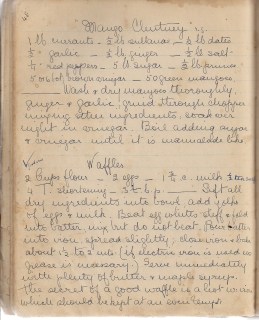 "Mango Chutney"
1 lb currants - ½ lb sultanas - ½ lb dates
garlic - ½ lb ginger - ½ lb salt
red peppers - 5 lb sugar - ½ lb prunes
brown vinegar - 50 green mangoes.
Wash & dry mangoes thoroughly,
ginger & garlic, grind through chopper
mixing other ingredients, soak over
night in vinegar. Boil adding sugar
& vinegar until it is marmalade like.
Waffles
2 Cups flour - 2 eggs - 1 ¾ c. milk
4 T. shortening - 3 ½ t. b.p. - Sift all
dry ingredients into bowl, add yolks
of eggs & milk. Beat egg whites stiff & fold
into batter, mix but do not beat. Pour batter
into iron spread slightly, close iron & bake
about 1½ to 2 mts. (if electric iron is used no
grease is necessary) Serve immediately
with plenty of butter & maple syrup.
The secret of a good waffle is a hot iron
which should be kept at an even temp.